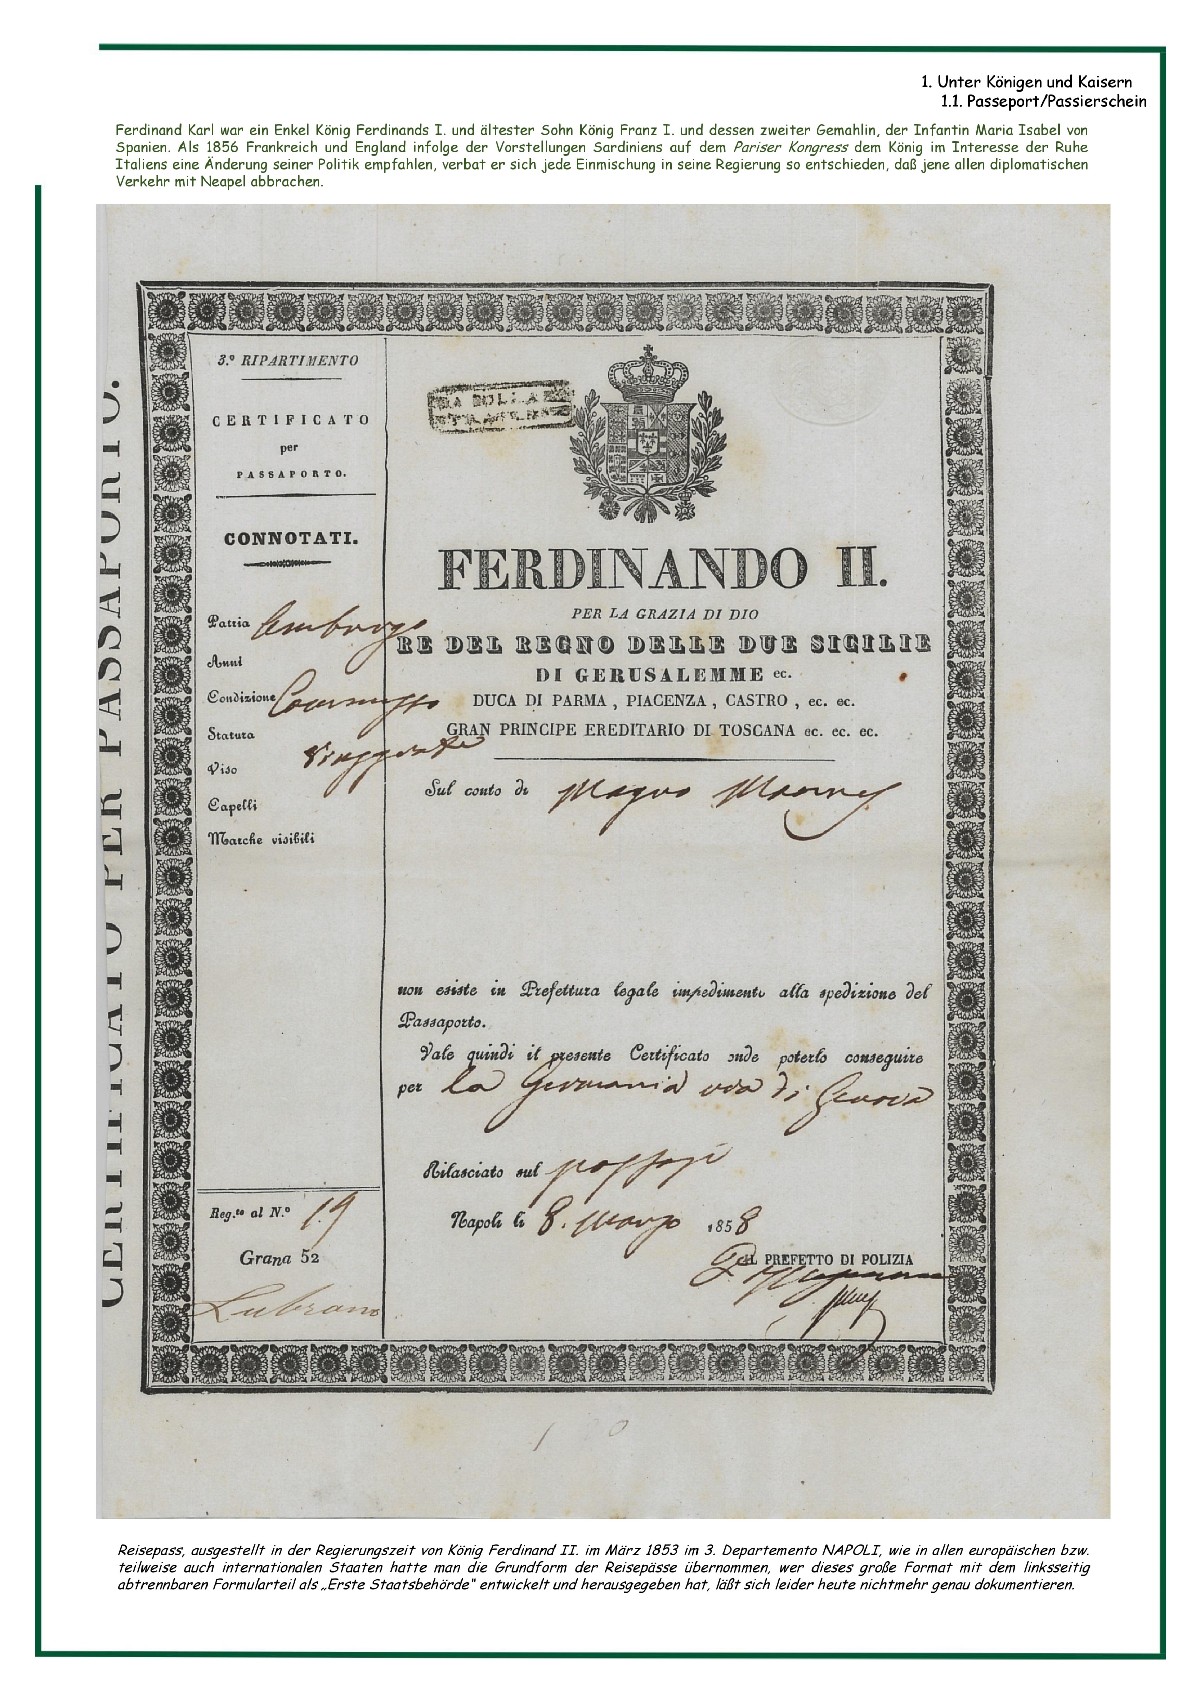 1. Unter Königen und Kaisern
1.1. Passeport/Passierschein
Ferdinand Karl war ein Enkel König Ferdinands I. und ältester Sohn König Franz I. und dessen zweiter Gemahlin, der Infantin Maria Isabel von
Spanien. Als 1856 Frankreich und England infolge der Vorstellungen Sardiniens auf dem Pariser Kongress dem König im Interesse der Ruhe
Italiens eine Änderung seiner Politik empfahlen, verbat er sich jede Einmischung in seine Regierung so entschieden, daß jene allen diplomatischen
Verkehr mit Neapel abbrachen.
CERTIFICATO PER PASSAPORTO.
3.º RIPARTIMENTO
CERTIFICATO
per
PASSAPORTO.
CONNOTATI.
Patria Amburgo
Anni
Condizione
Statura
Viso
Capelli
Marche visibili
Reg.to al N.º 19
Grana 52
Lubrano
FERDINANDO II.
PER LA GRAZIA DI DIO
RE DEL REGNO DELLE DUE SICILIE
DI GERUSALEMME ec.
DUCA DI PARMA, PIACENZA, CASTRO, ec. ec.
GRAN PRINCIPE EREDITARIO DI TOSCANA ec. ec. ec.
Sul conto di Magno
non esiste in Prefettura legale impedimento alla spedizione del
Passaporto.
Vale quindi il presente Certificato onde poterlo conseguire
per la Germania via di Genova
Rilasciato sul
Napoli li 8. Marzo 1858
IL PREFETTO DI POLIZIA
Reisepass, ausgestellt in der Regierungszeit von König Ferdinand II. im März 1853 im 3. Departemento NAPOLI, wie in allen europäischen bzw.
teilweise auch internationalen Staaten hatte man die Grundform der Reisepässe übernommen, wer dieses große Format mit dem linksseitig
abtrennbaren Formularteil als „Erste Staatsbehörde" entwickelt und herausgegeben hat, läßt sich leider heute nichtmehr genau dokumentieren.